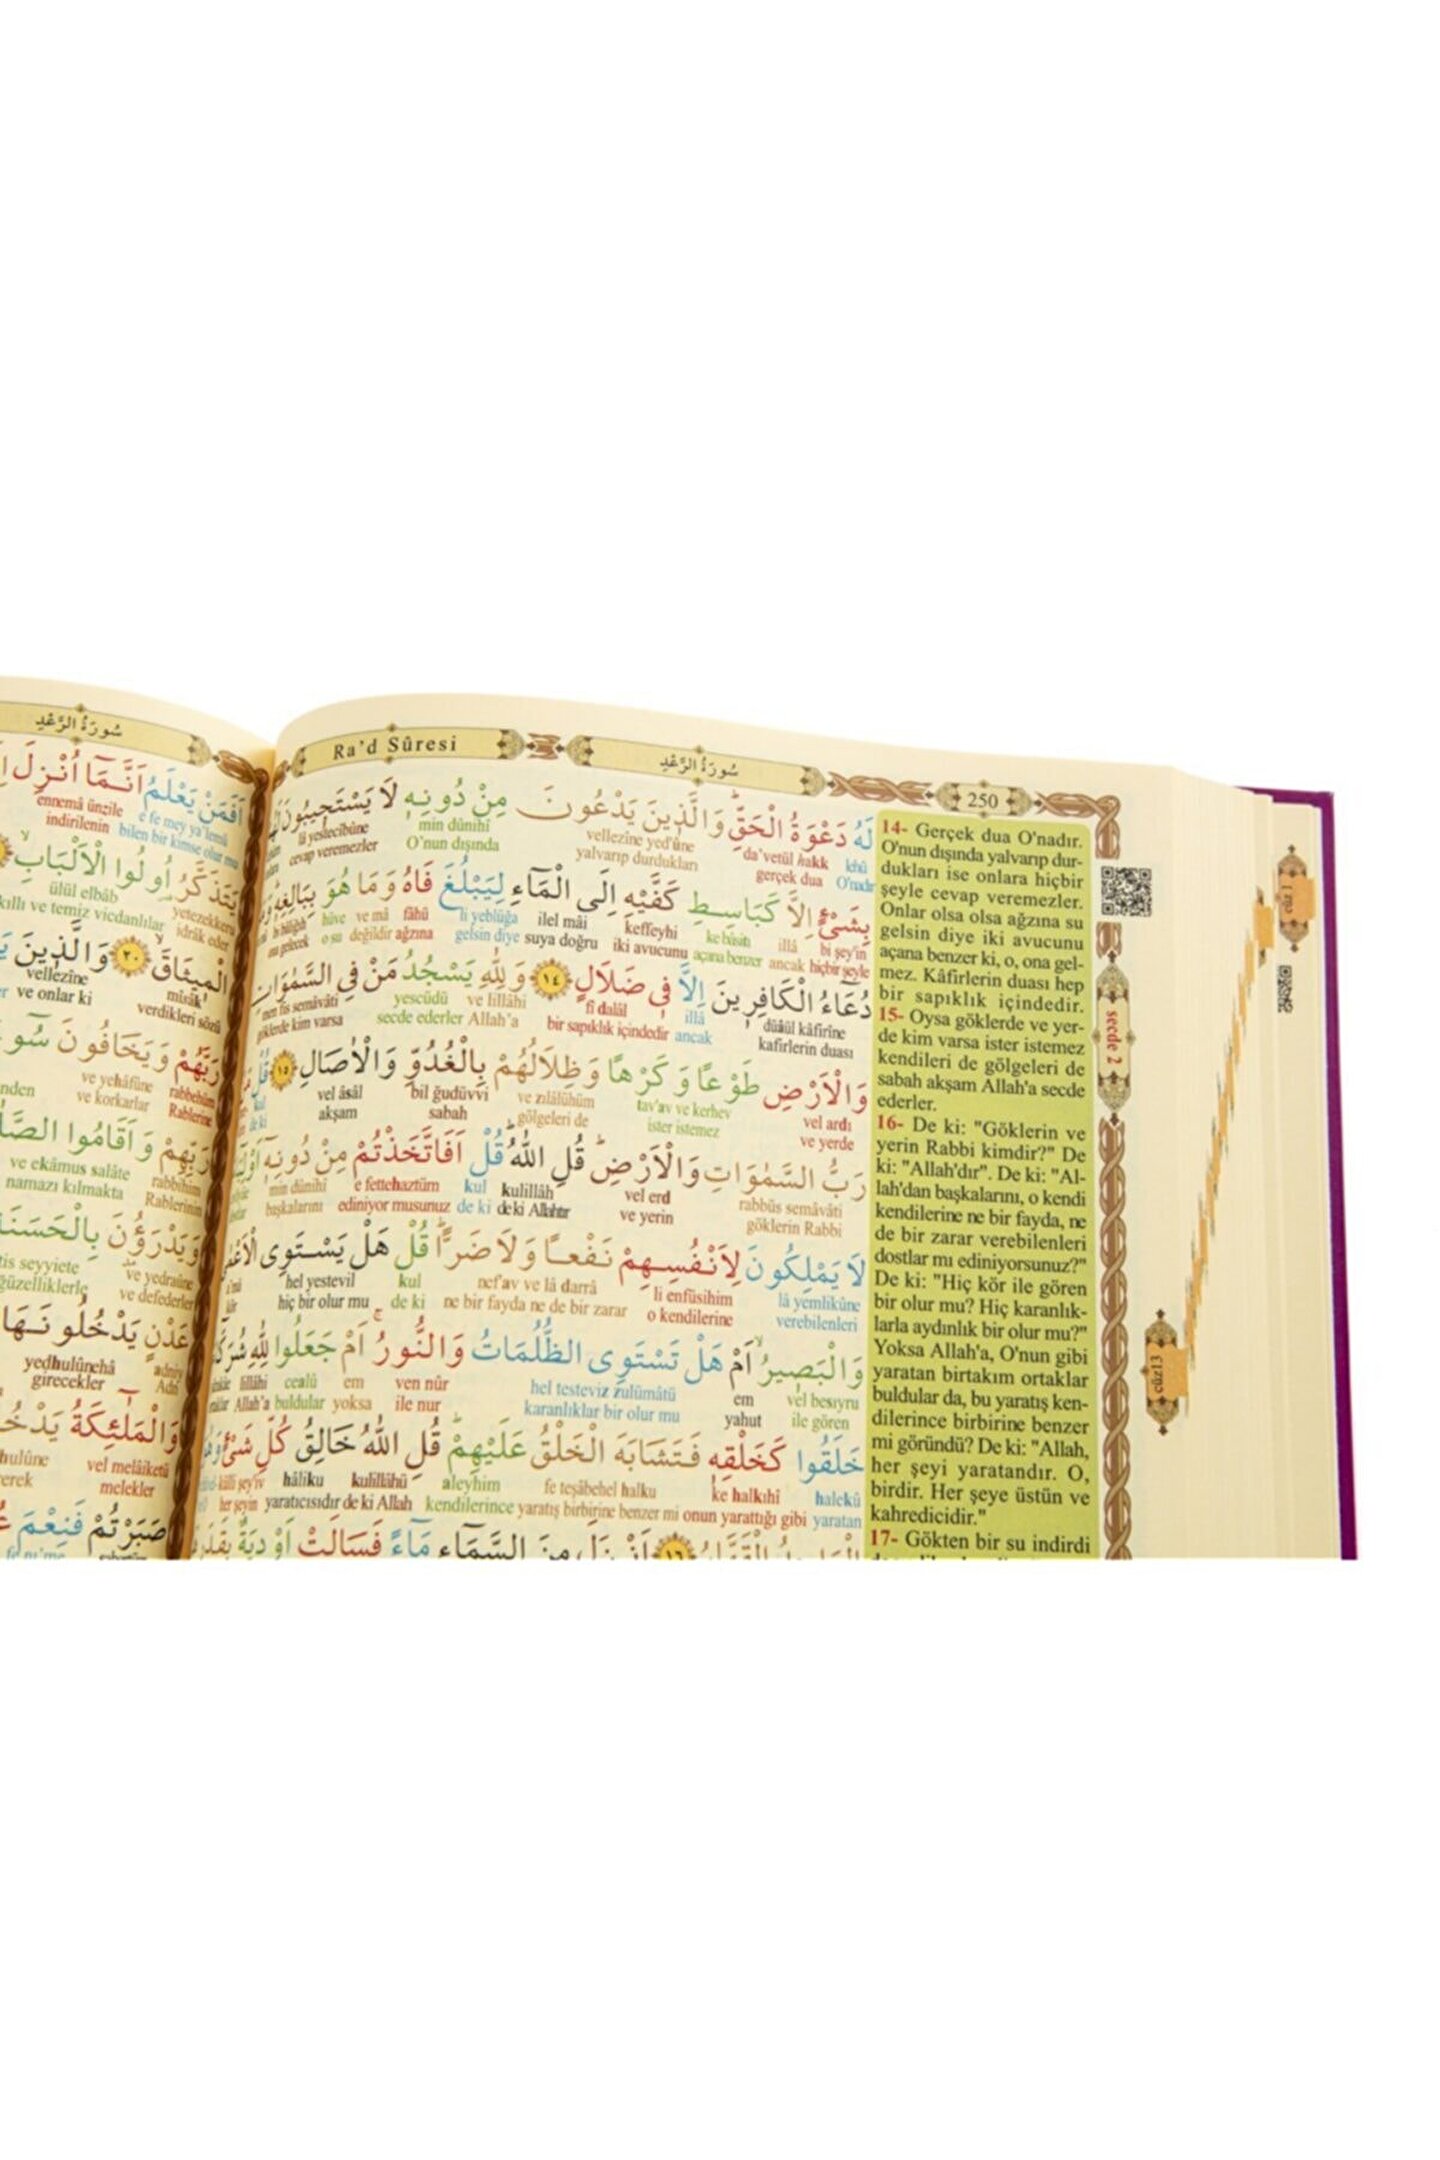 سُورَةُ الرَّعْدِ
Ra'd Sûresi
سُورَةُ الرَّعْدِ
250
لَهُ دَعْوَةُ الْحَقِّ وَالَّذِينَ يَدْعُونَ مِنْ دُونِهِ لَا يَسْتَجِيبُونَ
lehû da'vetül hakk vellezîne yed'ûne min dûnihî lâ yestecibûne
O'nadır gerçek dua yalvarıp durdukları O'nun dışında cevap veremezler
بِشَيْءٍ اِلَّا كَبَاسِطِ كَفَّيْهِ اِلَى الْمَاءِ لِيَبْلُغَ فَاهُ وَمَا هُوَ بِبَالِغِهِ
bi şey'in illâ ke bâsiti keffeyhi ilel mâi li yeblüğa fâhü ve mâ hüve bi bâliğih
hiçbir şeyle ancak açana benzer iki avucunu suya doğru gelsin diye ağzına değildir o su ona gelecek
دُعَاءُ الْكَافِرِينَ اِلَّا فِي ضَلَالٍ ١٤ وَلِلّٰهِ يَسْجُدُ مَنْ فِي السَّمٰوَاتِ
düâül kâfirîne illâ fî dalâl ve lillâhi yescüdü men fis semâvâti
kafirlerin duası ancak bir sapıklık içindedir Allah'a secde ederler göklerde kim varsa
وَالْاَرْضِ طَوْعًا وَكَرْهًا وَظِلَالُهُمْ بِالْغُدُوِّ وَالْاٰصَالِ ١٥ قُلْ
vel ardı tav'av ve kerhev ve zılâlühüm bil ğudüvvi vel âsâl kul
ve yerde ister istemez gölgeleri de sabah akşam de ki
رَبُّ السَّمٰوَاتِ وَالْاَرْضِ قُلِ اللّٰهُ قُلْ اَفَاتَّخَذْتُمْ مِنْ دُونِهِ
rabbüs semâvâti vel erd kulillâh kul e fettehaztüm min dûnihî
göklerin Rabbi ve yerin de ki Allahtır de ki ediniyor musunuz başkalarını
لَا يَمْلِكُونَ لِاَنْفُسِهِمْ نَفْعًا وَلَا ضَرًّا قُلْ هَلْ يَسْتَوِي الْاَعْمٰى
lâ yemlikûne li enfüsihim nef'av ve lâ darrâ kul hel yestevil
verebilenleri o kendilerine ne bir fayda ne de bir zarar de ki hiç bir olur mu kör
وَالْبَصِيرُ اَمْ هَلْ تَسْتَوِي الظُّلُمَاتُ وَالنُّورُ اَمْ جَعَلُوا لِلّٰهِ
vel besıyru em hel testeviz zulümâtü ven nûr em cealû lillâhi
ile gören yahut karanlıklar bir olur mu ile nur yoksa buldular Allah'a
خَلَقُوا كَخَلْقِهِ فَتَشَابَهَ الْخَلْقُ عَلَيْهِمْ قُلِ اللّٰهُ خَالِقُ كُلِّ شَيْءٍ
halekû ke halkıhî fe teşâbehel halku aleyhim kulillâhü hâliku külli şey'iv
yaratan onun yarattığı gibi yaratış birbirine benzer mi kendilerince de ki Allah yaratıcısıdır her şeyin
١٦ اَنْزَلَ مِنَ السَّمَاءِ مَاءً فَسَالَتْ اَوْدِيَةٌ
14- Gerçek dua O'nadır.
O'nun dışında yalvarıp dur-
dukları ise onlara hiçbir
şeyle cevap veremezler.
Onlar olsa olsa ağzına su
gelsin diye iki avucunu
açana benzer ki, o, ona gel-
mez. Kâfirlerin duası hep
bir sapıklık içindedir.
15- Oysa göklerde ve yer-
de kim varsa ister istemez
kendileri de gölgeleri de
sabah akşam Allah'a secde
ederler.
16- De ki: "Göklerin ve
yerin Rabbi kimdir?" De
ki: "Allah'dır". De ki: "Al-
lah'dan başkalarını, o kendi
kendilerine ne bir fayda, ne
de bir zarar verebilenleri
dostlar mı ediniyorsunuz?"
De ki: "Hiç kör ile gören
bir olur mu? Hiç karanlık-
larla aydınlık bir olur mu?"
Yoksa Allah'a, O'nun gibi
yaratan birtakım ortaklar
buldular da, bu yaratış ken-
dilerince birbirine benzer
mi göründü? De ki: "Allah,
her şeyi yaratandır. O,
birdir. Her şeye üstün ve
kahredicidir."
17- Gökten bir su indirdi
secde 2
cüz13
cüz1
اَفَمَنْ يَعْلَمُ اَنَّمَا اُنْزِلَ
e fe mey ya'lemü ennemâ ünzile
bilen bir kimse olur mu indirilenin
يَتَذَكَّرُ اُولُوا الْاَلْبَابِ
yetezekkeru ülül elbâb
idrâk eder akıllı ve temiz vicdanlılar
الْمِيثَاقَ ٢٠ وَالَّذِينَ
mîsâk vellezîne
verdikleri sözü ve onlar ki
رَبَّهُمْ وَيَخَافُونَ سُوءَ
rabbehüm ve yehâfûne
Rablerine ve korkarlar
رَبِّهِمْ وَاَقَامُوا
rabbihim ve ekâmus salâte
Rablerinin namazı kılmakta
وَيَدْرَؤُنَ بِالْحَسَنَةِ
ve yedraûne
ve defederler
عَدْنٍ يَدْخُلُونَهَا
adniy yedhulûnehâ
Adn girecekler
وَالْمَلٰئِكَةُ
vel melâiketü
melekler
صَبَرْتُمْ فَنِعْمَ